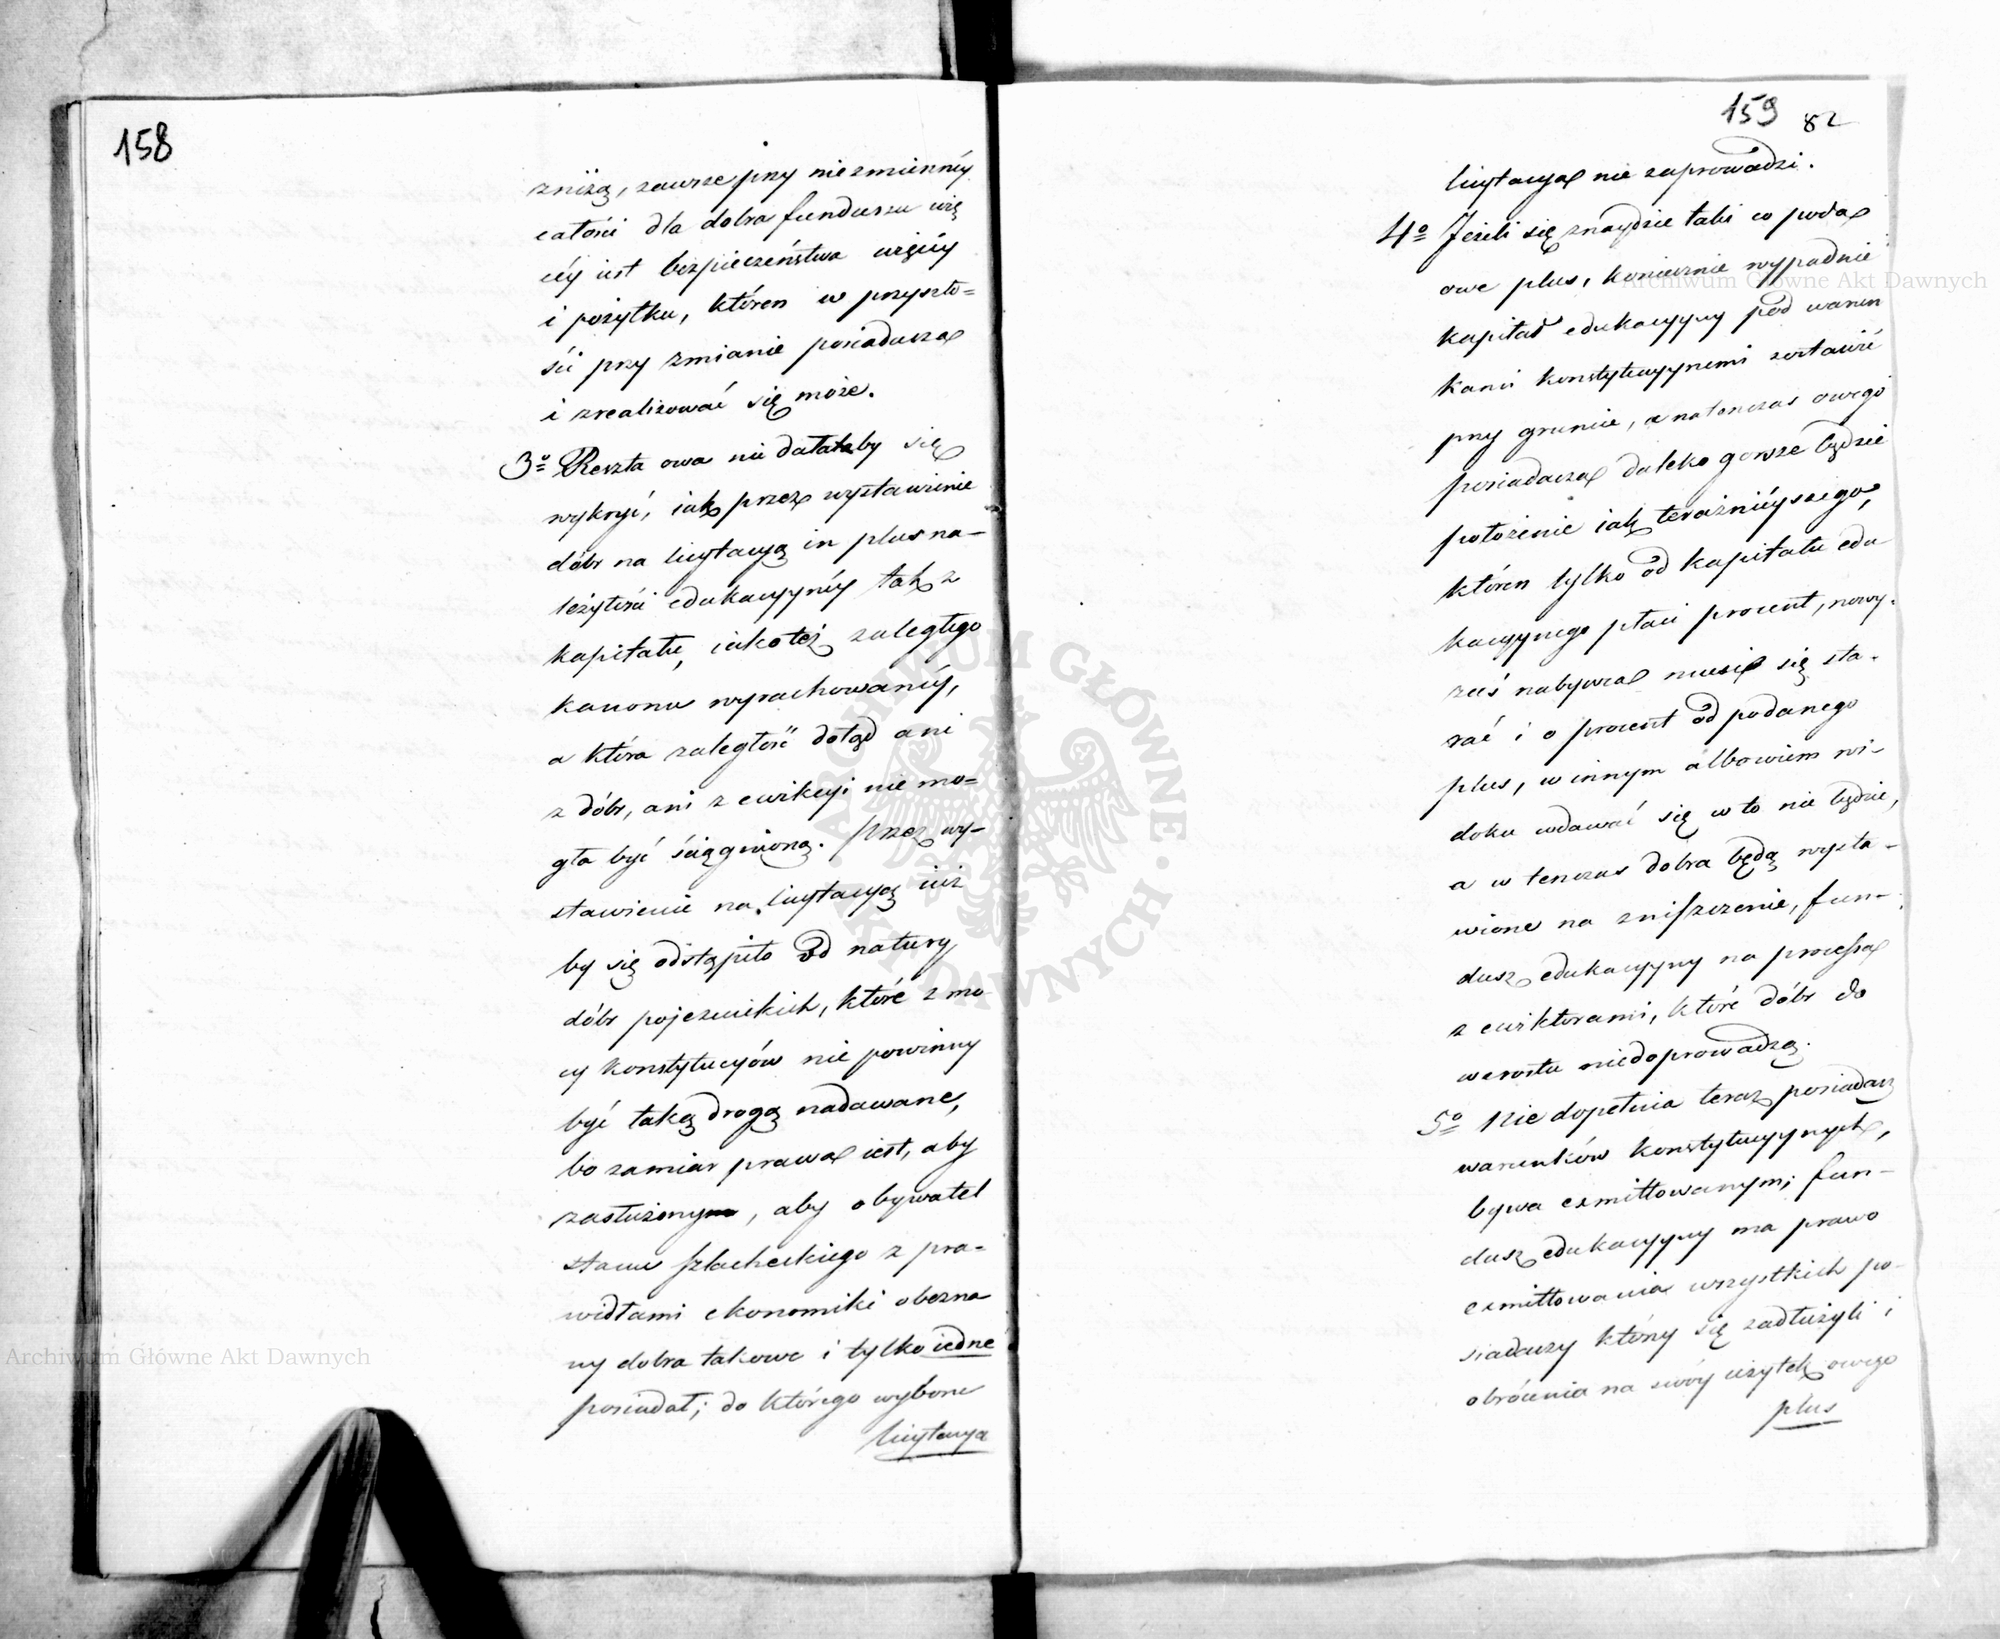 158
zniżą, zawsze przy niezmiennéy
całości dla dobra funduszu wię
céy iest bezpieczeństwa więcéy
i pożytku, któren w przyszło=
ści przy zmianie posiadacza
i zrealizować się może.
3o Reszta owa nie dałaby się
wykryć, iak przez wystawienie
dóbr na licytacyą in plus na=
leżytości edukacyynéy tak z
kapitału, iako téż zaległego
kanonu wyrachowanéy,
a która zaległość dotąd ani
z dóbr, ani z ewikcyi nie mo=
gła być ściągnioną. Przez wy=
stawienie na licytacyą iuż
by się odstąpiło od natury
dóbr pojezuickich, które z mo
cy konstytucyów nie powinny
być taką drogą nadawane,
bo zamiar prawa iest, aby
zasłużony, aby obywatel
stanu szlacheckiego z pra=
widłami ekonomiki obezna
ny dobra takowe i tylko iedne
posiadał; do którego wyboru
licytacya
159 82
licytacya nie zaprowadzi.
4o Jeżeli się znaydzie taki co poda
owe plus, koniecznie wypadnie
kapitał edukacyyny pod warun
kami konstytucyynemi zostawić
przy gruncie, a natenczas owego
posiadacza daleko gorsze będzie
położenie iak teraźnieyszego,
któren tylko od kapitału edu
kacyynego płaci procent, nowy
zaś nabywca musi się sta=
rać i o procent od podanego
plus, w innym albowiem wi=
doku wdawać się w to nie będzie,
a w tenczas dobra będą wysta=
wione na zniszczenie, fun=
dusz edukacyyny na processa
z ewiktorami, które dóbr do
wzrostu niedoprowadzą.
5o Nie dopełnia teraz posiadacz
warunków konstytucyynych,
bywa exmittowanym; fun=
dusz edukacyyny ma prawo
exmittowania wszystkich po=
siadaczy którzy się zadłużyli i
obrócenia na swóy użytek owego
plus
Archiwum Główne Akt Dawnych
Archiwum Główne Akt Dawnych
ARCHIWUM GŁÓWNE · AKT DAWNYCH ·